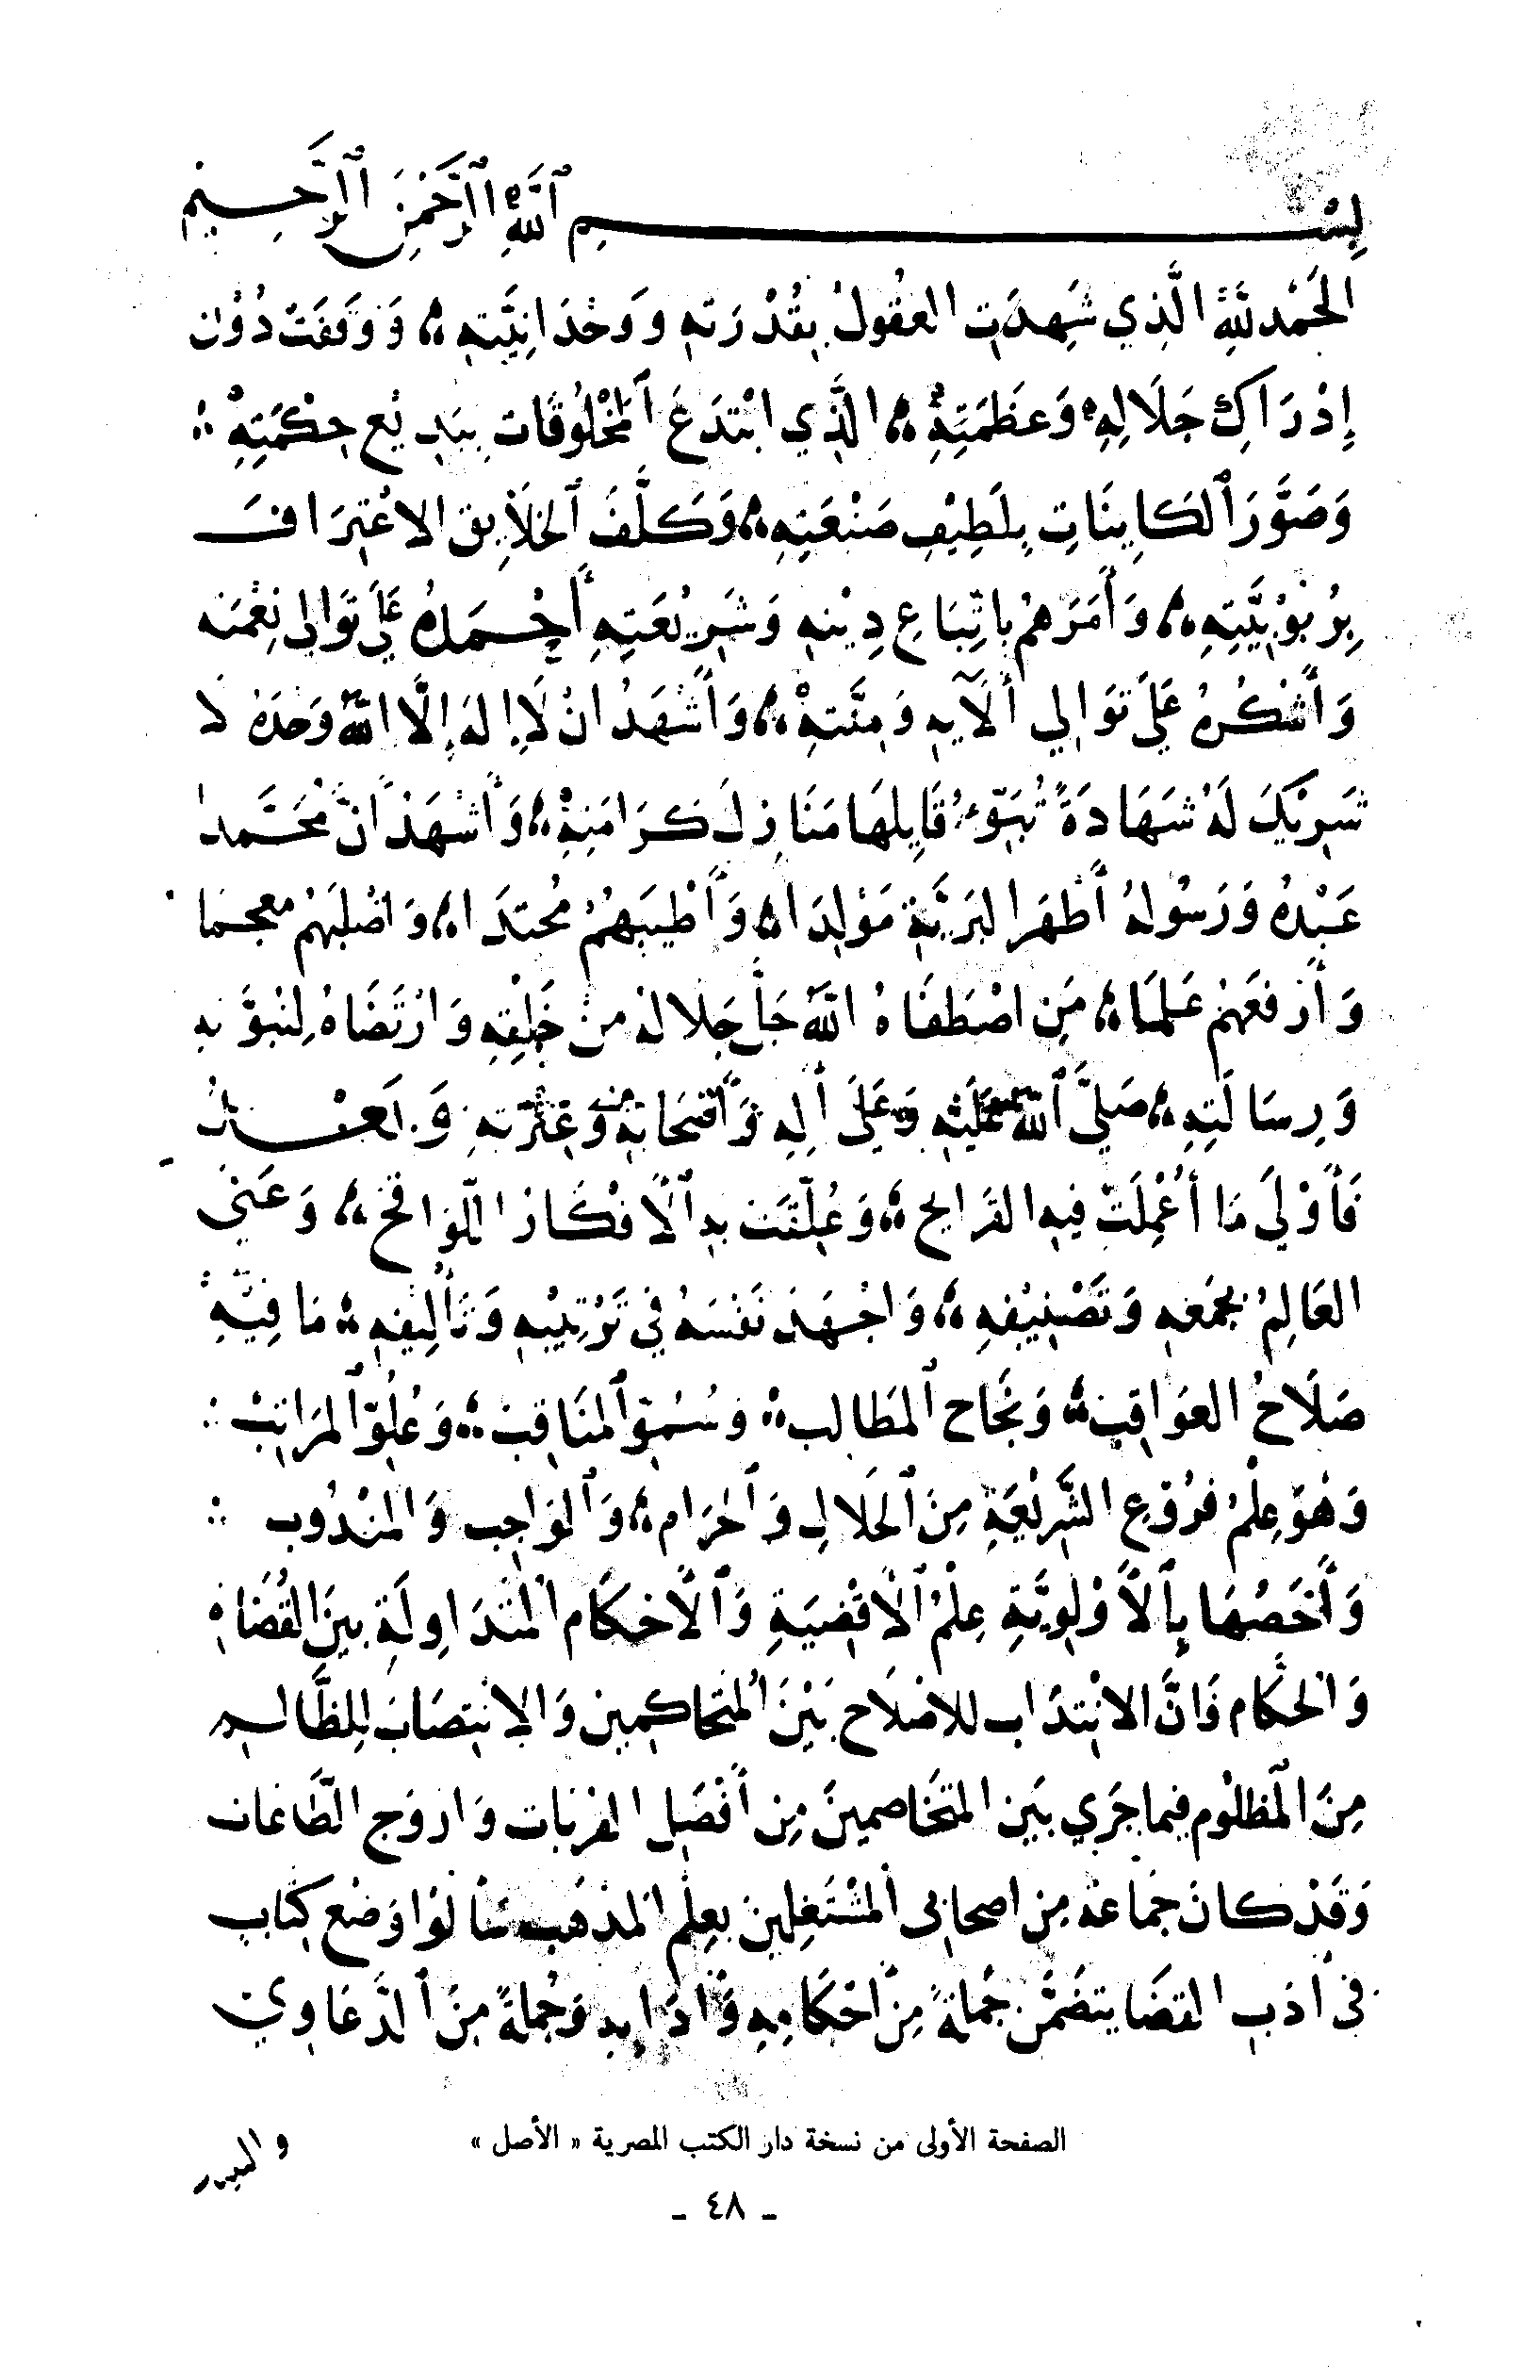 بِسْمِ ٱللَّهِ ٱلرَّحْمٰنِ ٱلرَّحِيمِ
الحَمْد لِلَّهِ الَّذِي شَهِدَت العُقُولُ بِقُدْرَتِهِ وَوَحْدَانِيَّتِهِ وَوَقَفَتْ دُوْنَ
إِدْرَاكِ جَلَالِهِ وَعَظَمَتِهِ الَّذِي ابْتَدَعَ ٱلمَخْلُوقَات بِبَدِيْعِ حِكْمَتِهِ
وَصَوَّرَ ٱلكَايِنَاتِ بِلَطِيْفِ صَنْعَتِهِ وَكَلَّفَ ٱلخَلَايِق الاعْتِرَافَ
بِرُبُوْبِيَّتِهِ وَأَمَرَهُم بِاتِّبَاعِ دِيْنِهِ وَشَرِيْعَتِهِ أَحْمَدُهُ عَلَى تَوَالِي نِعْمَتِه
وَأَشْكُرُهُ عَلَى تَوَالِي أَلَآيِهِ وَمِنَّتِهِ وَأَشْهَدُ انْ لَا إِلهَ إِلَّا اللَّهُ وَحْدَهُ لَا
شَرِيْكَ لَهُ شَهَادَةً تُبَوِّءُ قَايِلَهَا مَنَازِلَ كَرَامَتِهِ وَأَشْهَدُ أَنَّ مُحَمَّدا
عَبْدُهُ وَرَسُوْلُهُ أَطْهَر البَرِيَّةِ مَوْلِدَا وَأَطْيَبهُمْ مُحتِدَا وَاصْلَبَهُمْ معجمَا
وَأَرْفَعَهُمْ عَلَمَا مَنِ اصْطَفَاهُ اللَّهُ جَلَّ جَلَالهُ مِنْ خَلْقِهِ وَارْتَضَاهُ لِنُبوَّتِهِ
وَرِسَالَتِهِ صَلَّى ٱللَّهُ عَلَيْهِ وَعَلَى أَلِهِ وَأَصْحَابِهِ وَعِتْرَتِهِ وَبَعْدُ
فَأَوْلَى مَا أُعْمِلَتْ فِيهِ القَرَايِح وَعُلِّقَت بِهِ ٱلأَفْكَارُ اللَّوَاقِح وَعَنَى
العَالِمُ بِجَمْعِهِ وَتَصْنِيْفِهِ وَاجْهَدَ نَفْسَهُ فِي تَرْتِيْبِهِ وَتَأْلِيْفِهِ مَا فِيْهِ
صَلَاحُ العَوَاقِبْ وَنَجَاح ٱلمَطَالب وَسُمُوّ ٱلمَنَاقِبْ وَعُلُوّ ٱلمَرَاتِبْ
وَهُوَ عِلْمُ فُرُوْعِ الشَّرِيْعَةِ مِنَ ٱلحَلَالِ وَٱلحَرَام وَٱلوَاجِب وَالمَنْدُوْب
وَأَخَصُّهَا بِٱلأَوْلَوِيَّةِ عِلْمُ ٱلأَقْضِيَةِ وَٱلأَحْكَام المُتَدَاوِلَةِ بَيْنَ القُضَاهِ
وَالحُكَّام فَانَّ الانْتِدَاب للاصْلَاح بَيْنَ المُتَحَاكِمِين وَالِانْتِصَابَ لِلظَّالِمِ
مِنَ ٱلمَظْلُوْم فِيمَا جَرَي بَيْن المُتَخَاصِمِينَ مِن أَفْضَلِ القُرُبَات وَارْوَج الطَّاعَات
وَقَدْ كَانَ جَمَاعَةٌ مِن اصحَابى المُشْتَغِلِين بِعِلْمِ المَذْهَب سَأَلُوْا وَضْع كِتَابٍ
فى أَدَبِ القضَا يتضَمَّنُ جُملةً مِنْ أَحْكَامِهِ وَأَدَابِهِ وَجُملةً مِنَ ٱلدَّعَاوِي
والبينات
الصفحة الأولى من نسخة دار الكتب المصرية « الأصل »
ـ ٤٨ ـ